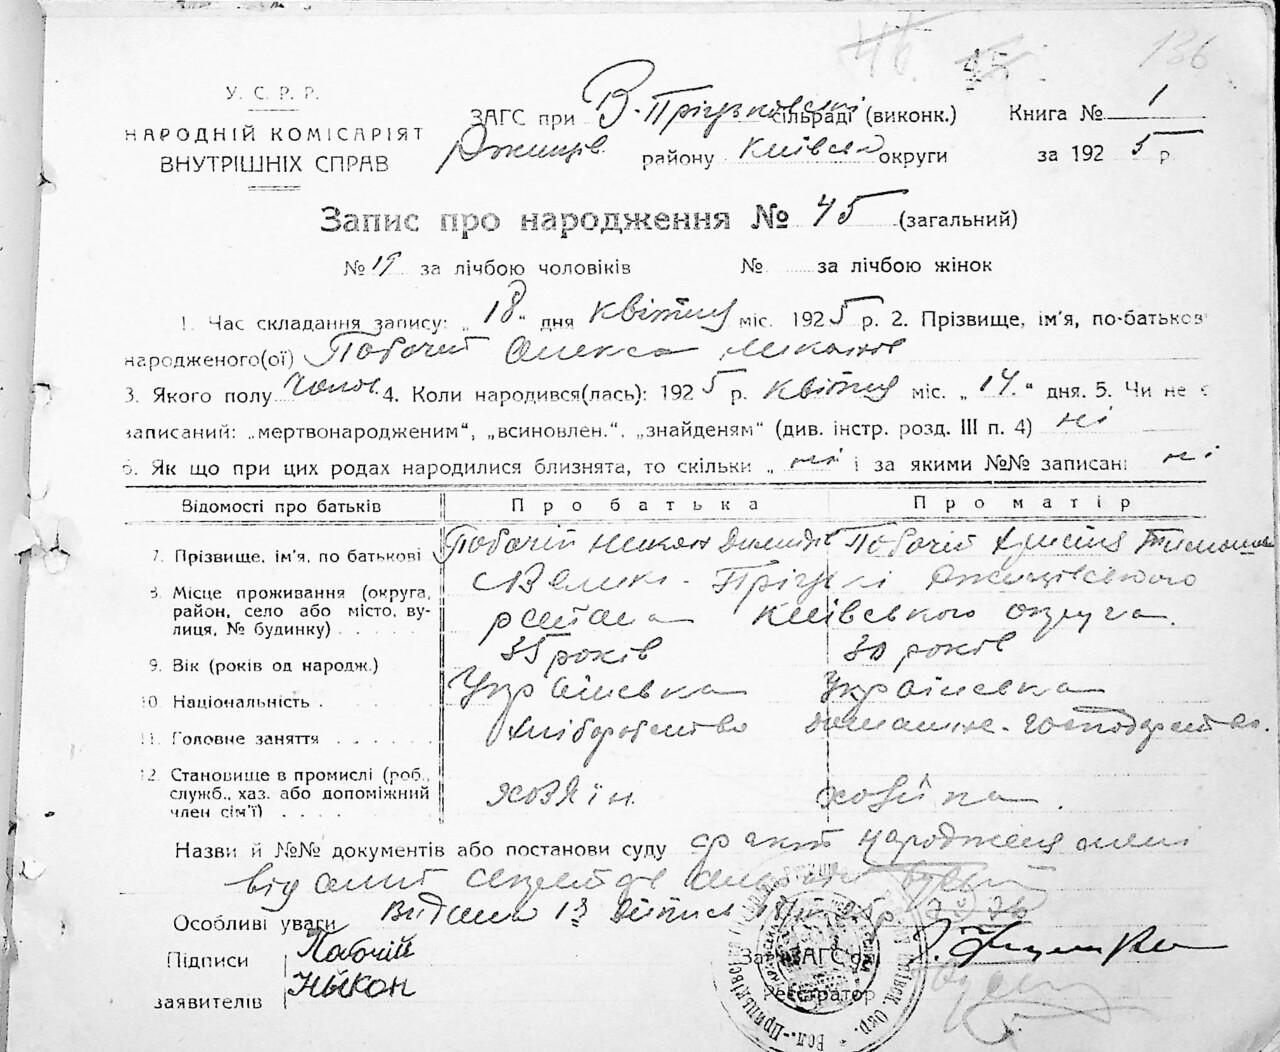 46. 45 136
У. С. Р. Р.
НАРОДНІЙ КОМІСАРІЯТ
ВНУТРІШНІХ СПРАВ
ЗАГС при В-Пріцьковські сільраді (виконк.) Книга № 1
Ржищів. району Київськ округи за 1925 р
Запис про народження № 45 (загальний)
№ 19 за лічбою чоловіків № за лічбою жінок
1. Час складання запису: „18" дня квітня міс. 1925 р. 2. Прізвище, ім'я, по-батькові
народженого(ої) Побочій Олекса Никонов
3. Якого полу Чолов. 4. Коли народився(лась): 1925 р. квітня міс. „14." дня. 5. Чи не є
записаний: „мертвонародженим", „всиновлен.", „знайденям" (див. інстр. розд. III п. 4) ні
6. Як що при цих родах народилися близнята, то скільки „ ні і за якими №№ записані ні
Відомості про батьків Про батька Про матір
7. Прізвище, ім'я, по батькові Побочій Никон Побочій Христина
8. Місце проживання (округа, район, село або місто, вулиця, № будинку) с Велик. Пріцькі Ржищівського
района Київського округа.
9. Вік (років од народж.) 35 років 30 років
10. Національність . Українська Українська
11. Головне заняття . . . . . Хліборобство домашнє-господарство.
12. Становище в промислі (роб., служб., хаз. або допоміжний член сім'ї) . . . . хозяїн хозяйка.
Назви й №№ документів або постанови суду факт народження
від
Особливі уваги Видана
Підписи Побочій
заявителів Ныкон
Зав. ЗАГС'ом
Реєстратор